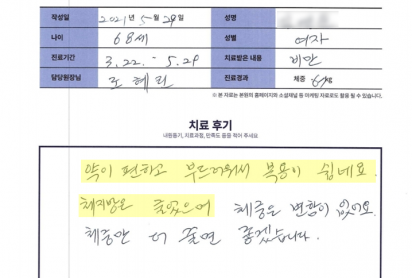 작성일 2021년 5월 29일 성명
나이 68세 성별 여자
진료기간 3.22. - 5.29 치료받은 내용 비만
담당원장님 조혜리 진료경과 체중 6kg
※ 본 자료는 본원의 홈페이지와 소셜채널 등 마케팅 자료로도 활용 될 수 있습니다.
치료 후기
내원동기, 치료과정, 만족도 등을 적어 주세요
약이 편하고 부드러워서 복용이 쉽네요.
체지방은 줄었으며 체중은 변함이 없어요
체중만 더 줄면 좋겠습니다.